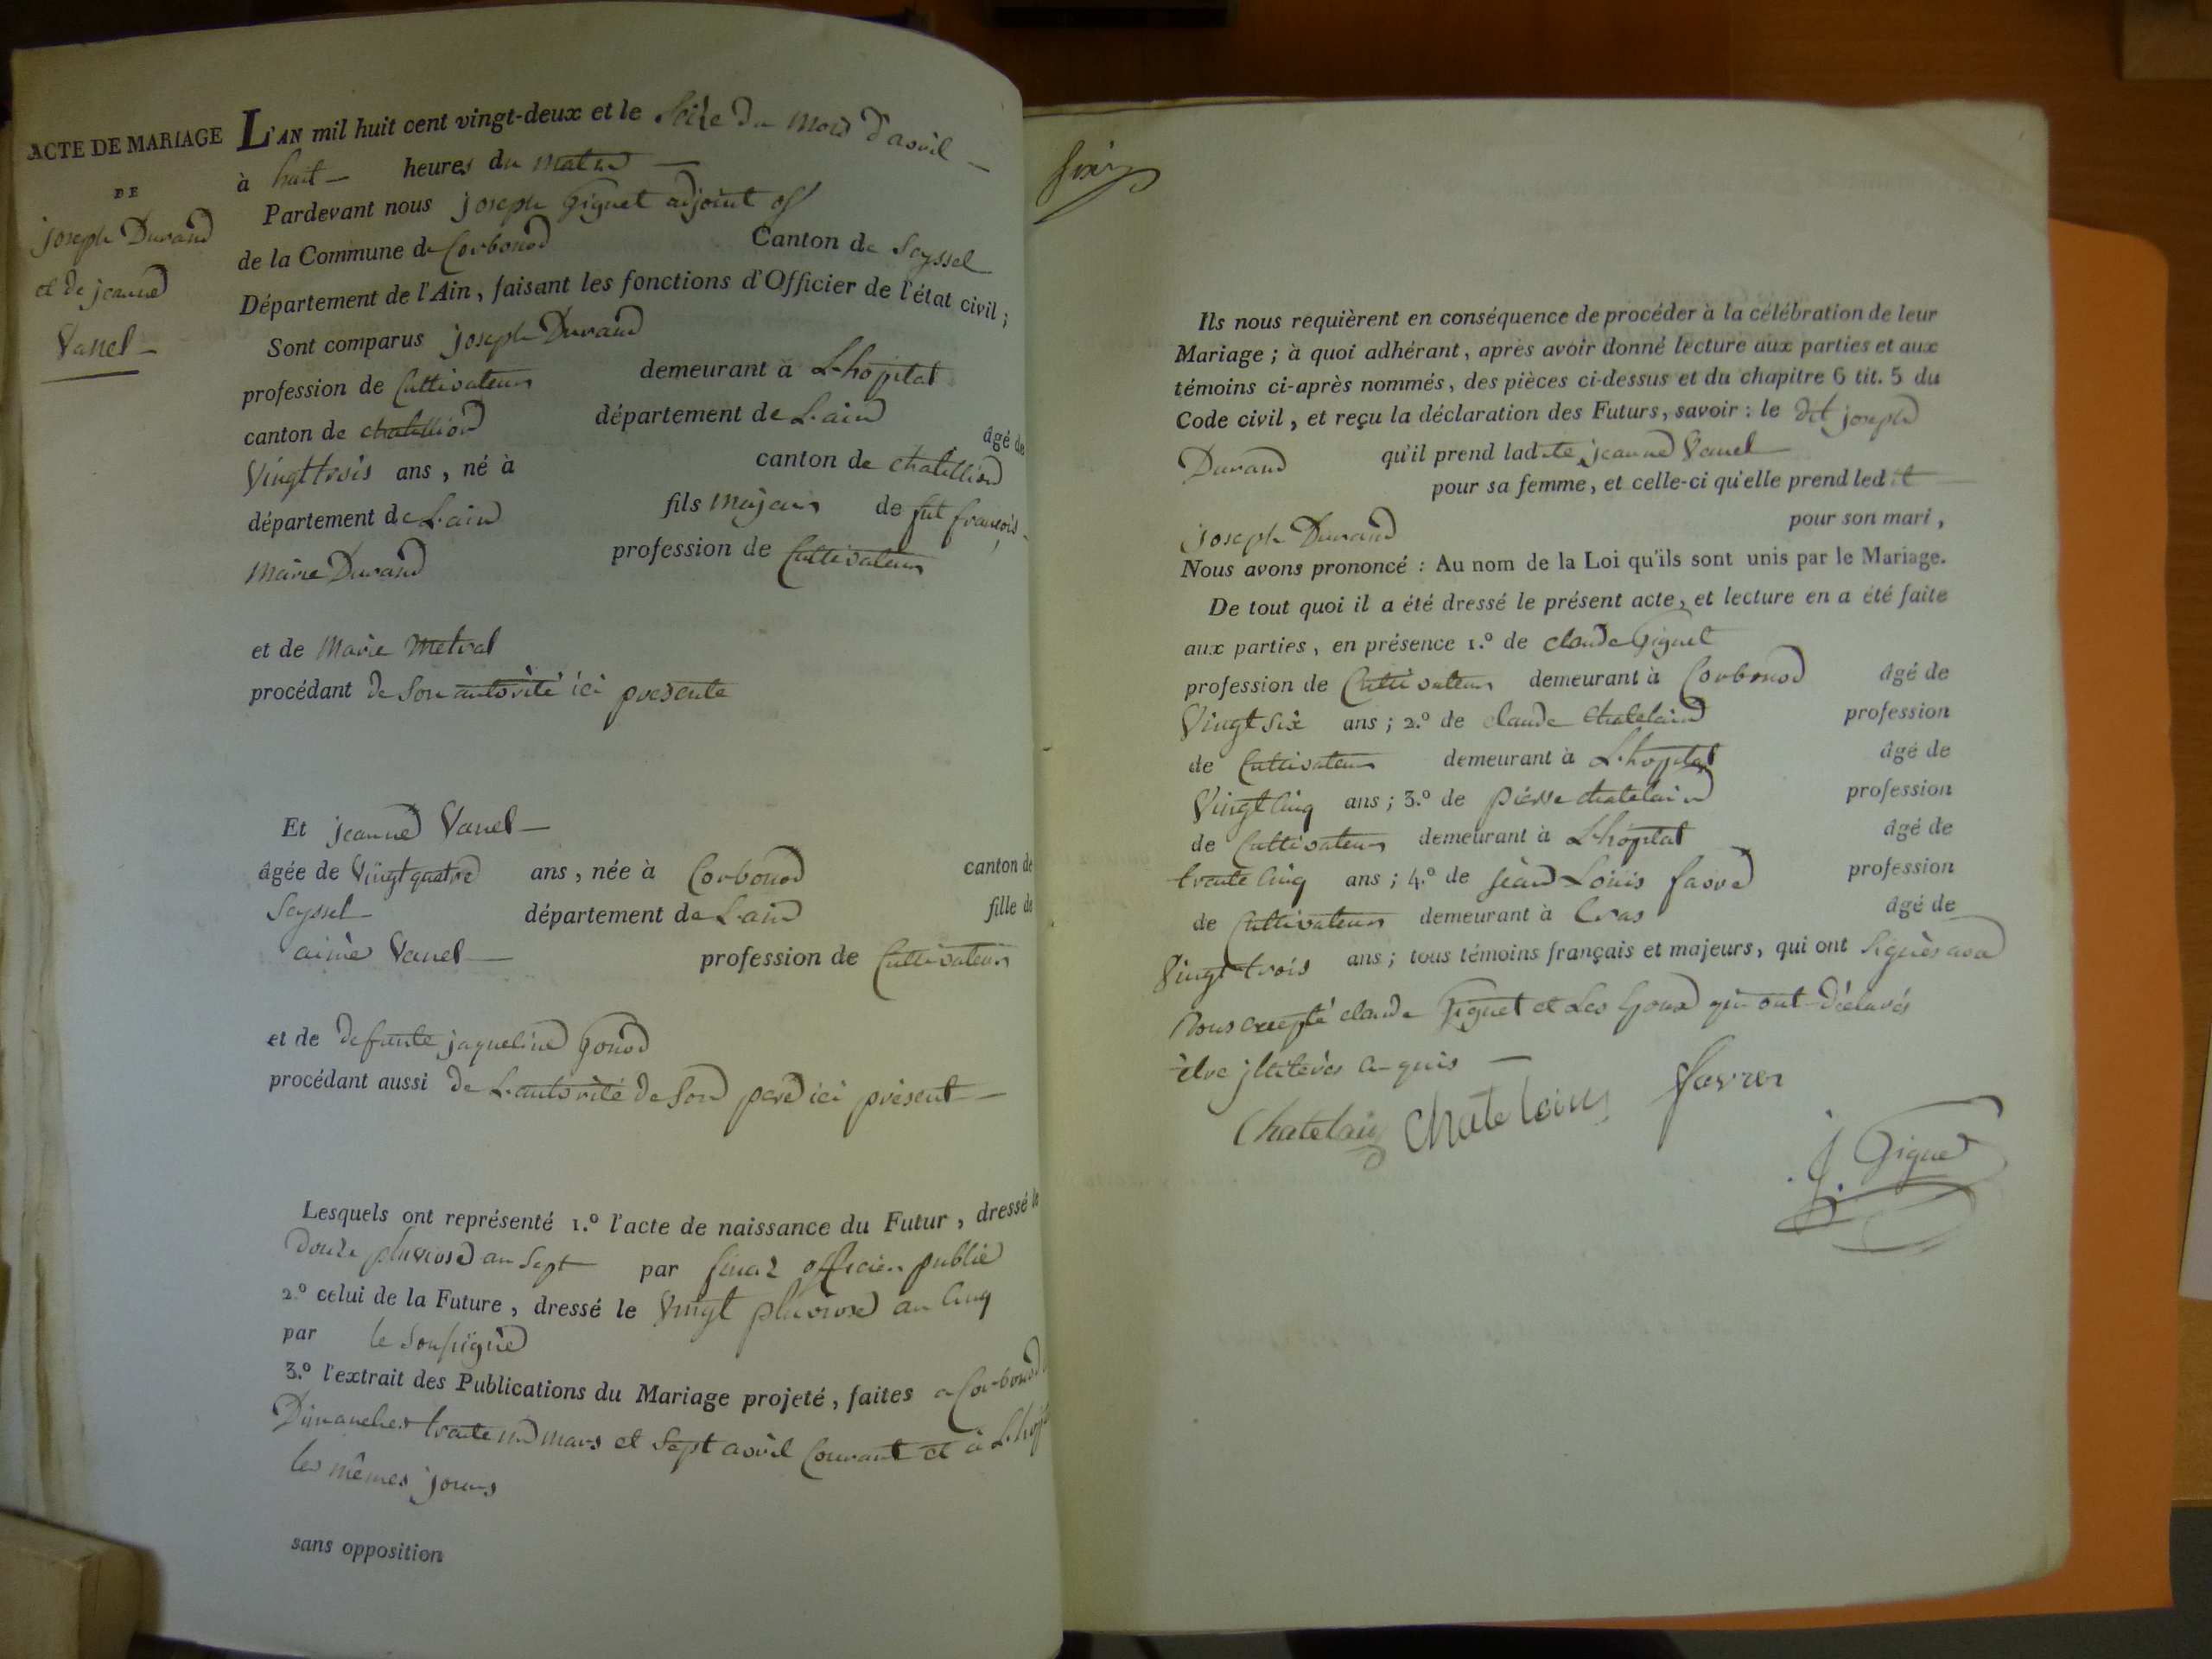 ACTE DE MARIAGE
DE
joseph Durand
et de jeanne
Vanel
L'AN mil huit cent vingt-deux et le Seize du mois d'avril
à huit heures du matin
Pardevant nous joseph Giguet adjoint
de la Commune de Corbonod Canton de Seyssel
Département de l'Ain, faisant les fonctions d'Officier de l'état civil ;
Sont comparus joseph Durand
profession de Cultivateur demeurant à L-hopital
canton de chatillion département de L-ain âgé de
Vingt trois ans, né à canton de chatillion
département de L-ain fils majeur de fut francois
Marie Durand profession de Cultivateur
et de Marie Metral
procédant de Son autorité ici presente
Et jeanne Vanel
âgée de Vingt quatre ans, née à Corbonod canton de
Seyssel département de L-ain fille de
aimé Vanel profession de Cultivateur
et de defunte jaqueline Gonod
procédant aussi de L-autorité de Son pere ici présent
Lesquels ont représenté 1.º l'acte de naissance du Futur, dressé le
Douze pluviose an Sept par officier public
2.º celui de la Future, dressé le Vingt pluviose an Cinq
par le Sousigné
3.º l'extrait des Publications du Mariage projeté, faites a Corbonod
Dimanches trente un mars et Sept avril Courant et à L-hop
les mêmes jours
sans opposition
Ils nous requièrent en conséquence de procéder à la célébration de leur
Mariage ; à quoi adhérant, après avoir donné lecture aux parties et aux
témoins ci-après nommés, des pièces ci-dessus et du chapitre 6 tit. 5 du
Code civil, et reçu la déclaration des Futurs, savoir : le dit joseph
Durand qu'il prend ladite jeanne Vanel
pour sa femme, et celle-ci qu'elle prend ledit
joseph Durand pour son mari,
Nous avons prononcé : Au nom de la Loi qu'ils sont unis par le Mariage.
De tout quoi il a été dressé le présent acte, et lecture en a été faite
aux parties, en présence 1.º de claude Giguet
profession de Cultivateur demeurant à Corbonod âgé de
Vingt Six ans ; 2.º de claude chatelain profession
de Cultivateur demeurant à L-hopital âgé de
Vingt Cinq ans ; 3.º de pierre chatelain profession
de Cultivateur demeurant à L-hopital âgé de
trente Cinq ans ; 4.º de jean Louis favre profession
de Cultivateur demeurant à Cras âgé de
Vingt trois ans ; tous témoins français et majeurs, qui ont Signés avec
Nous excepté claude Giguet et Les Epoux qui ont déclarés
être jlliterés enquis
Chatelain Chatelain favre
J. Giguet